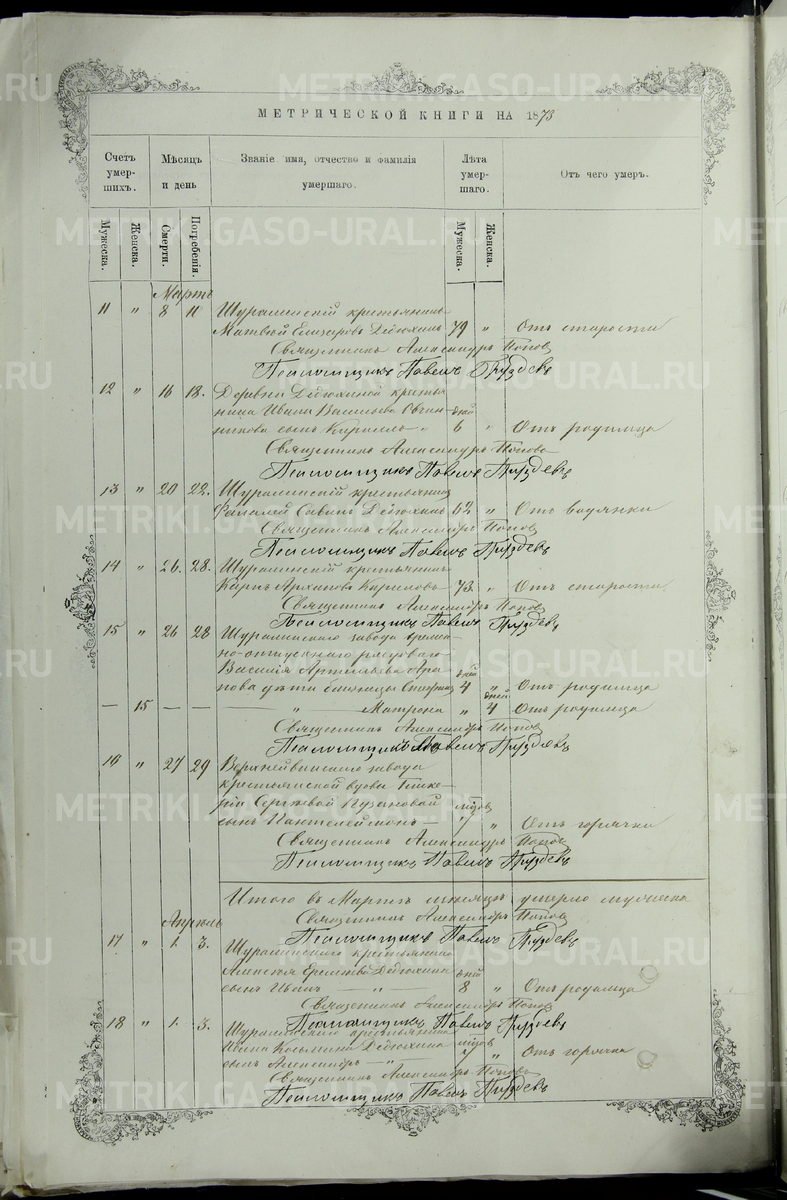 МЕТРИЧЕСКОЙ КНИГИ НА 1873
Счетъ умер-шихъ.
Мѣсяцъ и день
Званіе имя, отчество и фамилія умершаго.
Лѣта умер-шаго.
Отъ чего умеръ.
Мужеска.
Женска.
Смерти.
Погребенія.
Мужеска.
Женска.
Мартъ
11 " 8 11 Шуралинскій крестьянинъ
Матвѣй Елизаровъ Дедюхинъ 79 " Отъ старости
Священникъ Александръ Поповъ
Псаломщикъ Павелъ Груздевъ
12 " 16 18. Деревни Дедюхиной крестья-
нина Ивана Васильева Овчин- дней
никова сынъ Кириллъ 6 " Отъ родимца
Священникъ Александръ Поповъ
Псаломщикъ Павелъ Груздевъ
13 " 20 22. Шуралинскій крестьянинъ
Савинъ Дедюхинъ 62 " Отъ водянки
Священникъ Александръ Поповъ
Псаломщикъ Павелъ Груздевъ
14 " 26. 28. Шуралинскій крестьянинъ
Карпъ Архиповъ Кириловъ 73. " Отъ старости
Священникъ Александръ Поповъ
Псаломщикъ Павелъ Груздевъ
15 " 26 28 Шуралинскаго завода времен-
но-отпускнаго рядоваго
Василія
дней
нова дѣти близнецы 4 " Отъ родимца
дней
— 15 — — — " — Матрона " 4 Отъ родимца
Священникъ Александръ Поповъ
Псаломщикъ Павелъ Груздевъ
16 " 27 29 Верхнейвинскаго завода
крестьянской вдовы Глике-
ріи Сергѣевой Пузановой м-цовъ
сынъ Пантелеймонъ — 7 " Отъ горячки
Священникъ Александръ Поповъ
Псаломщикъ Павелъ Груздевъ
Итого въ Мартѣ мѣсяцѣ умерло мужеска
Священникъ Александръ Поповъ
Псаломщикъ Павелъ Груздевъ
Апрѣль
17 " 1. 3. Шуралинскаго крестьянина
Дедюхина дней
сынъ Иванъ — " — 8 " Отъ родимца
Священникъ Александръ Поповъ
Псаломщикъ Павелъ Груздевъ
18 " 1. 3. Шуралинскаго крестьянина
Ивана Козьмина Дедюхина м-цовъ
сынъ Александръ — " — 7 " Отъ горячки
Священникъ Александръ Поповъ
Псаломщикъ Павелъ Груздевъ
METRIKI.GASO-URAL.RU